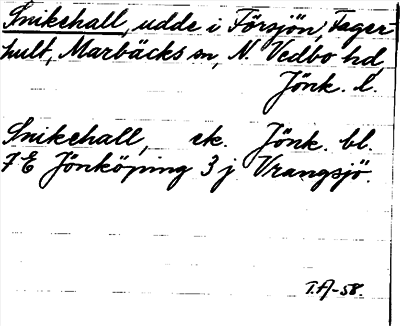 Snikehall, udde i Försjön, Fager-
hult, Marbäcks sn, N. Vedbo hd,
Jönk. l.
Snikehall, ek. Jönk. bl.
7 E Jönköping 3 j Vrangsjö.
T.A-58.